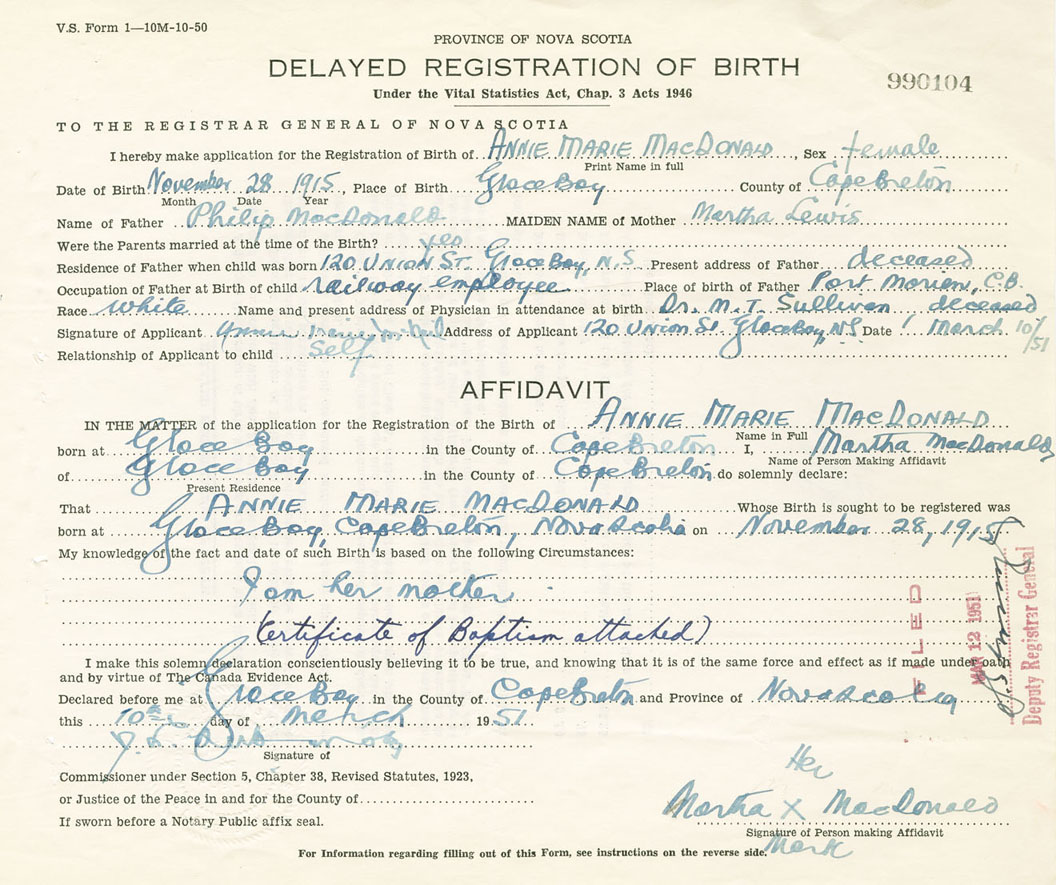 V.S. Form 1—10M-10-50
PROVINCE OF NOVA SCOTIA
DELAYED REGISTRATION OF BIRTH
990104
Under the Vital Statistics Act, Chap. 3 Acts 1946
TO THE REGISTRAR GENERAL OF NOVA SCOTIA
I hereby make application for the Registration of Birth of ANNIE MARIE MACDONALD, Sex female
Print Name in full
Date of Birth November 28 1915, Place of Birth Glace Bay County of Cape Breton
Month Date Year
Name of Father Philip MacDonald MAIDEN NAME of Mother Martha Lewis
Were the Parents married at the time of the Birth? yes
Residence of Father when child was born 120 Union St. Glace Bay, N.S. Present address of Father deceased
Occupation of Father at Birth of child railway employee Place of birth of Father Port Morien, C.B.
Race White Name and present address of Physician in attendance at birth Dr. M. T. Sullivan deceased
Signature of Applicant Address of Applicant 120 Union St Glace Bay, NS Date March 10/51
Relationship of Applicant to child Self
AFFIDAVIT
IN THE MATTER of the application for the Registration of the Birth of ANNIE MARIE MACDONALD
Name in Full
born at Glace Bay in the County of Cape Breton I, Martha MacDonald
Name of Person Making Affidavit
of Glace Bay in the County of Cape Breton do solemnly declare:
Present Residence
That ANNIE MARIE MACDONALD Whose Birth is sought to be registered was
born at Glace Bay, Cape Breton, Nova Scotia on November 28, 1915
My knowledge of the fact and date of such Birth is based on the following Circumstances:
I am her mother
(Certificate of Baptism attached)
I make this solemn declaration conscientiously believing it to be true, and knowing that it is of the same force and effect as if made under oath
and by virtue of The Canada Evidence Act.
Declared before me at Glace Bay in the County of Cape Breton and Province of Nova Scotia
this 10th day of March 1951
Signature of
Commissioner under Section 5, Chapter 38, Revised Statutes, 1923,
or Justice of the Peace in and for the County of
If sworn before a Notary Public affix seal.
Her
Martha X MacDonald
Signature of Person making Affidavit
Mark
For Information regarding filling out of this Form, see instructions on the reverse side.
FILED
MAR 12 1951
Deputy Registrar General